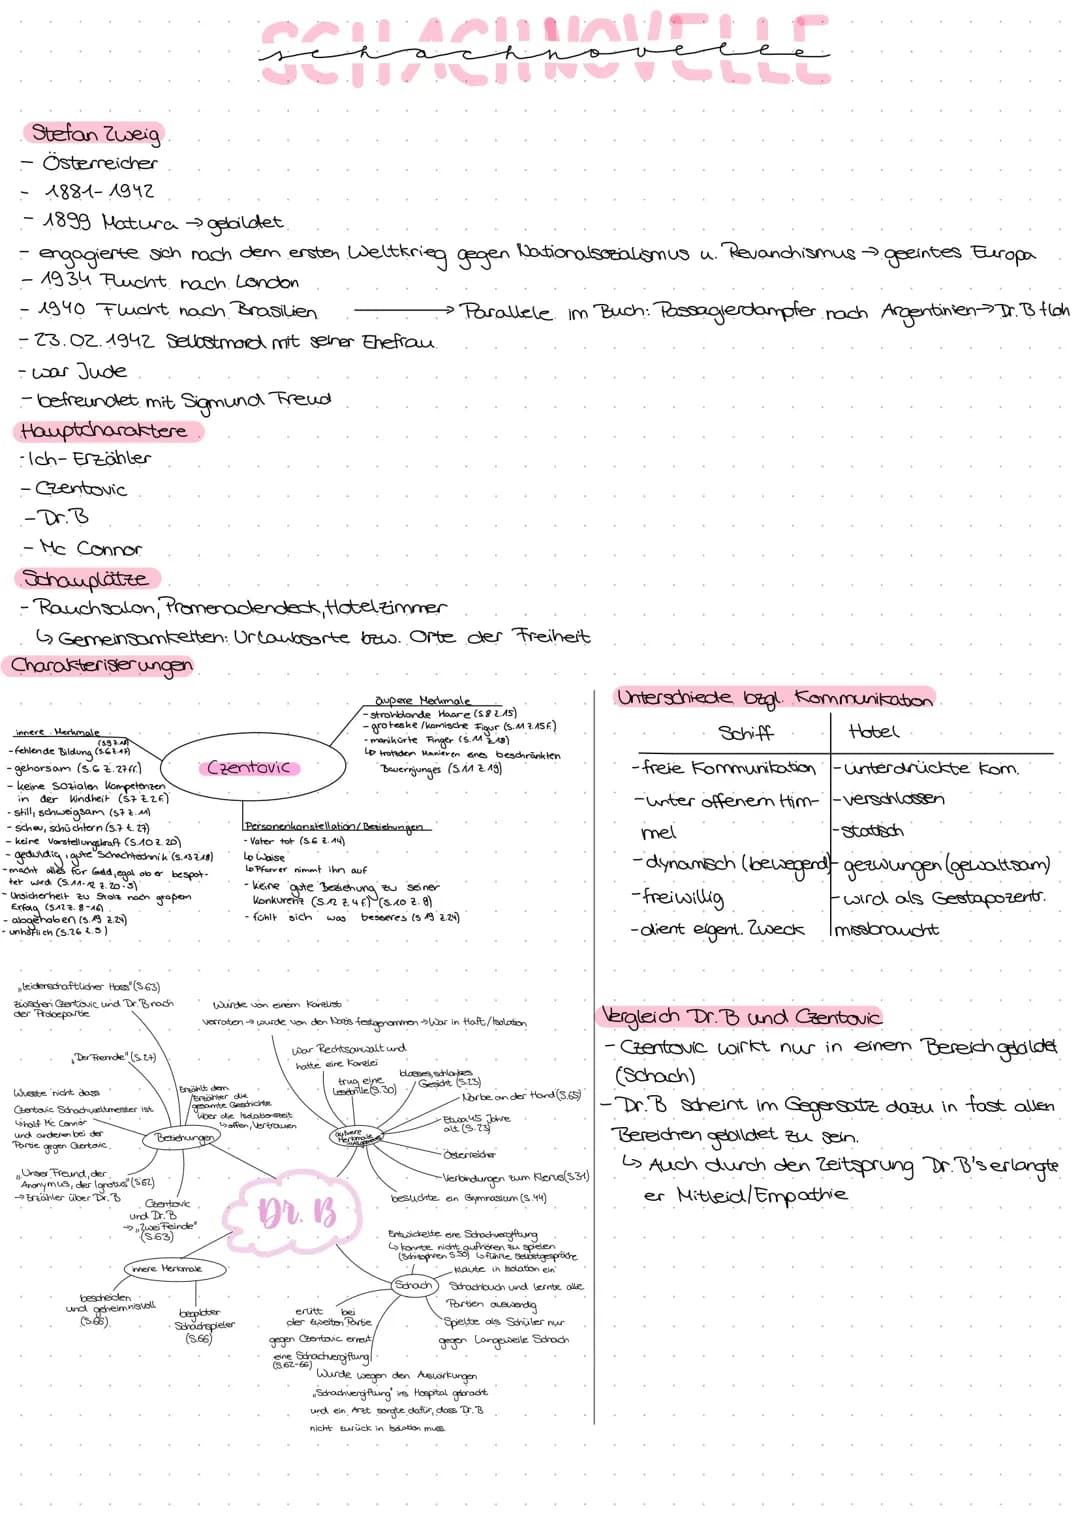 SCHACHNOVELLE
schachnovelle
Stefan Zweig
- Österreicher
- 1881-1942
- 1899 Matura → gebildet
- engagierte sich nach dem ersten Weltkrieg gegen Nationalsozialismus u. Revanchismus → geeintes Europa
- 1934 Flucht nach London
- 1940 Flucht nach Brasilien → Parallele im Buch: Passagierdampfer nach Argentinien → Dr. B floh
- 23.02.1942 Selbstmord mit seiner Ehefrau
- war Jude
- befreundet mit Sigmund Freud
Hauptcharaktere
- Ich-Erzähler
- Czentovic
- Dr. B
- Mc Connor
Schauplätze
- Rauchsalon, Promenadendeck, Hotelzimmer
↳ Gemeinsamkeiten: Urlaubsorte bzw. Orte der Freiheit
Charakterisierungen
Czentovic
innere Merkmale
- fehlende Bildung (S.6 Z.17)
- gehorsam (S.6 Z.27ff.)
- keine sozialen Kompetenzen
in der Kindheit (S7 Z2f.)
- still, schweigsam (S7 Z.11)
- scheu, schüchtern (S.7 Z.27)
- keine Vorstellungskraft (S.10 Z.20)
- geduldig, gute Schachtechnik (S.13 Z.18)
- macht alles für Geld, egal ob er bespot-
tet wird (S.11-12 Z.20-5)
- Unsicherheit zu Stolz nach großem
Erfolg (S.12 Z.8-16)
- abgehoben (S.19 Z.24)
- unhöflich (S.26 Z.5)
äußere Merkmale
- strohblonde Haare (S.8 Z.15)
- groteske/komische Figur (S.11 Z.15f.)
- manikürte Finger (S.11 Z.18)
↳ trotzdem Manieren eines beschränkten
Bauernjunges (S.11 Z.19)
Personenkonstellation/Beziehungen
- Vater tot (S.6 Z.14)
↳ Waise
↳ Pfarrer nimmt ihn auf
- keine gute Beziehung zu seiner
Konkurenz (S.12 Z.4f.) (S.10 Z.8)
- fühlt sich was besseres (S.19 Z.24)
Unterschiede bzgl. Kommunikation
Schiff
Hotel
- freie Kommunikation
- unterdrückte Kom.
- unter offenem Him-
- verschlossen
mel
- statisch
- dynamisch (bewegend)
- gezwungen (gewaltsam)
- freiwillig
- wird als Gestapozentr.
- dient eigent. Zweck
missbraucht
Vergleich Dr. B und Czentovic
- Czentovic wirkt nur in einem Bereich gebildet
(Schach)
- Dr. B scheint im Gegensatz dazu in fast allen
Bereichen gebildet zu sein.
↳ Auch durch den Zeitsprung Dr. B's erlangte
er Mitleid/Empathie
Dr. B
Beziehungen
„leidenschaftlicher Hass" (S.63)
zwischen Czentovic und Dr. B nach
der Probepartie
„Der Fremde" (S.27)
Wusste nicht dass
Czentovic Schachweltmeister ist
↳ half Mc Connor
und anderen bei der
Partie gegen Czentovic
Erzählt dem
Erzähler die
gesamte Geschichte
über die Isolationszeit
↳ offen, Vertrauen
„Unser Freund, der
Anonymus, der Ignotus" (S.62)
→ Erzähler über Dr. B
Czentovic
und Dr. B
→ „zwei Feinde"
(S.63)
innere Merkmale
bescheiden
und geheimnisvoll
(S.66)
begabter
Schachspieler
(S.66)
äußere
Merkmale
Wurde von einem Kanzlist
verraten → wurde von den Nazis festgenommen → War in Haft/Isolation
War Rechtsanwalt und
hatte eine Kanzlei
trug eine
Lesebrille (S.30)
blasses, schlankes
Gesicht (S.23)
Narbe an der Hand (S.65)
Etwa 45 Jahre
alt (S.23)
Österreicher
Verbindungen zum Klerus (S.31)
besuchte ein Gymnasium (S.44)
Schach
Entwickelte eine Schachvergiftung
↳ konnte nicht aufhören zu spielen
(Schizophren S.50) ↳ führte Selbstgespräche
klaute in Isolation ein
Schachbuch und lernte alle
Partien auswendig
Spielte als Schüler nur
gegen Langeweile Schach
erlitt bei
der zweiten Partie
gegen Czentovic erneut
eine Schachvergiftung
(S.62-66)
Wurde wegen den Auswirkungen
„Schachvergiftung" ins Hospital gebracht
und ein Arzt sorgte dafür, dass Dr. B
nicht zurück in Isolation muss